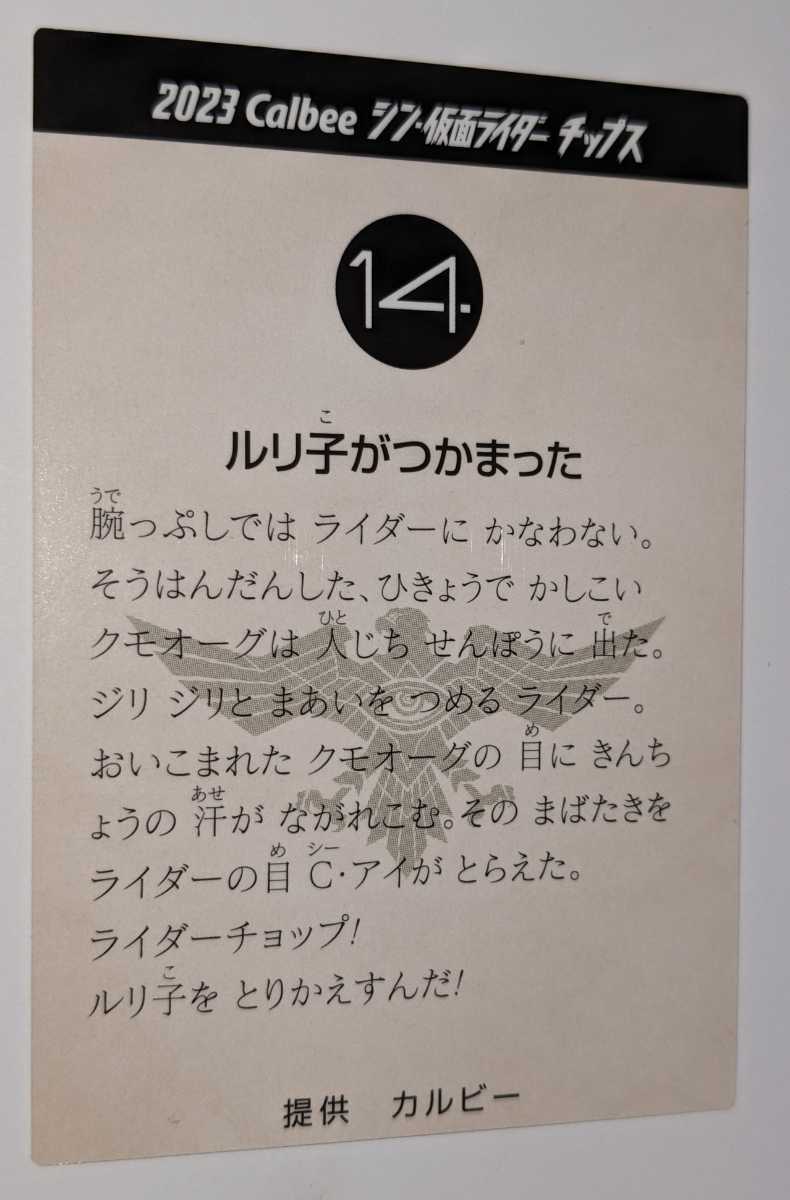 2023 Calbee シン・仮面ライダー チップス
14.
ルリ子がつかまった
腕っぷしでは ライダーに かなわない。
そうはんだんした、ひきょうで かしこい
クモオーグは 人じち せんぽうに 出た。
ジリ ジリと まあいを つめる ライダー。
おいこまれた クモオーグの 目に きんち
ょうの 汗が ながれこむ。その まばたきを
ライダーの目 C・アイが とらえた。
ライダーチョップ!
ルリ子を とりかえすんだ!
提供 カルビー